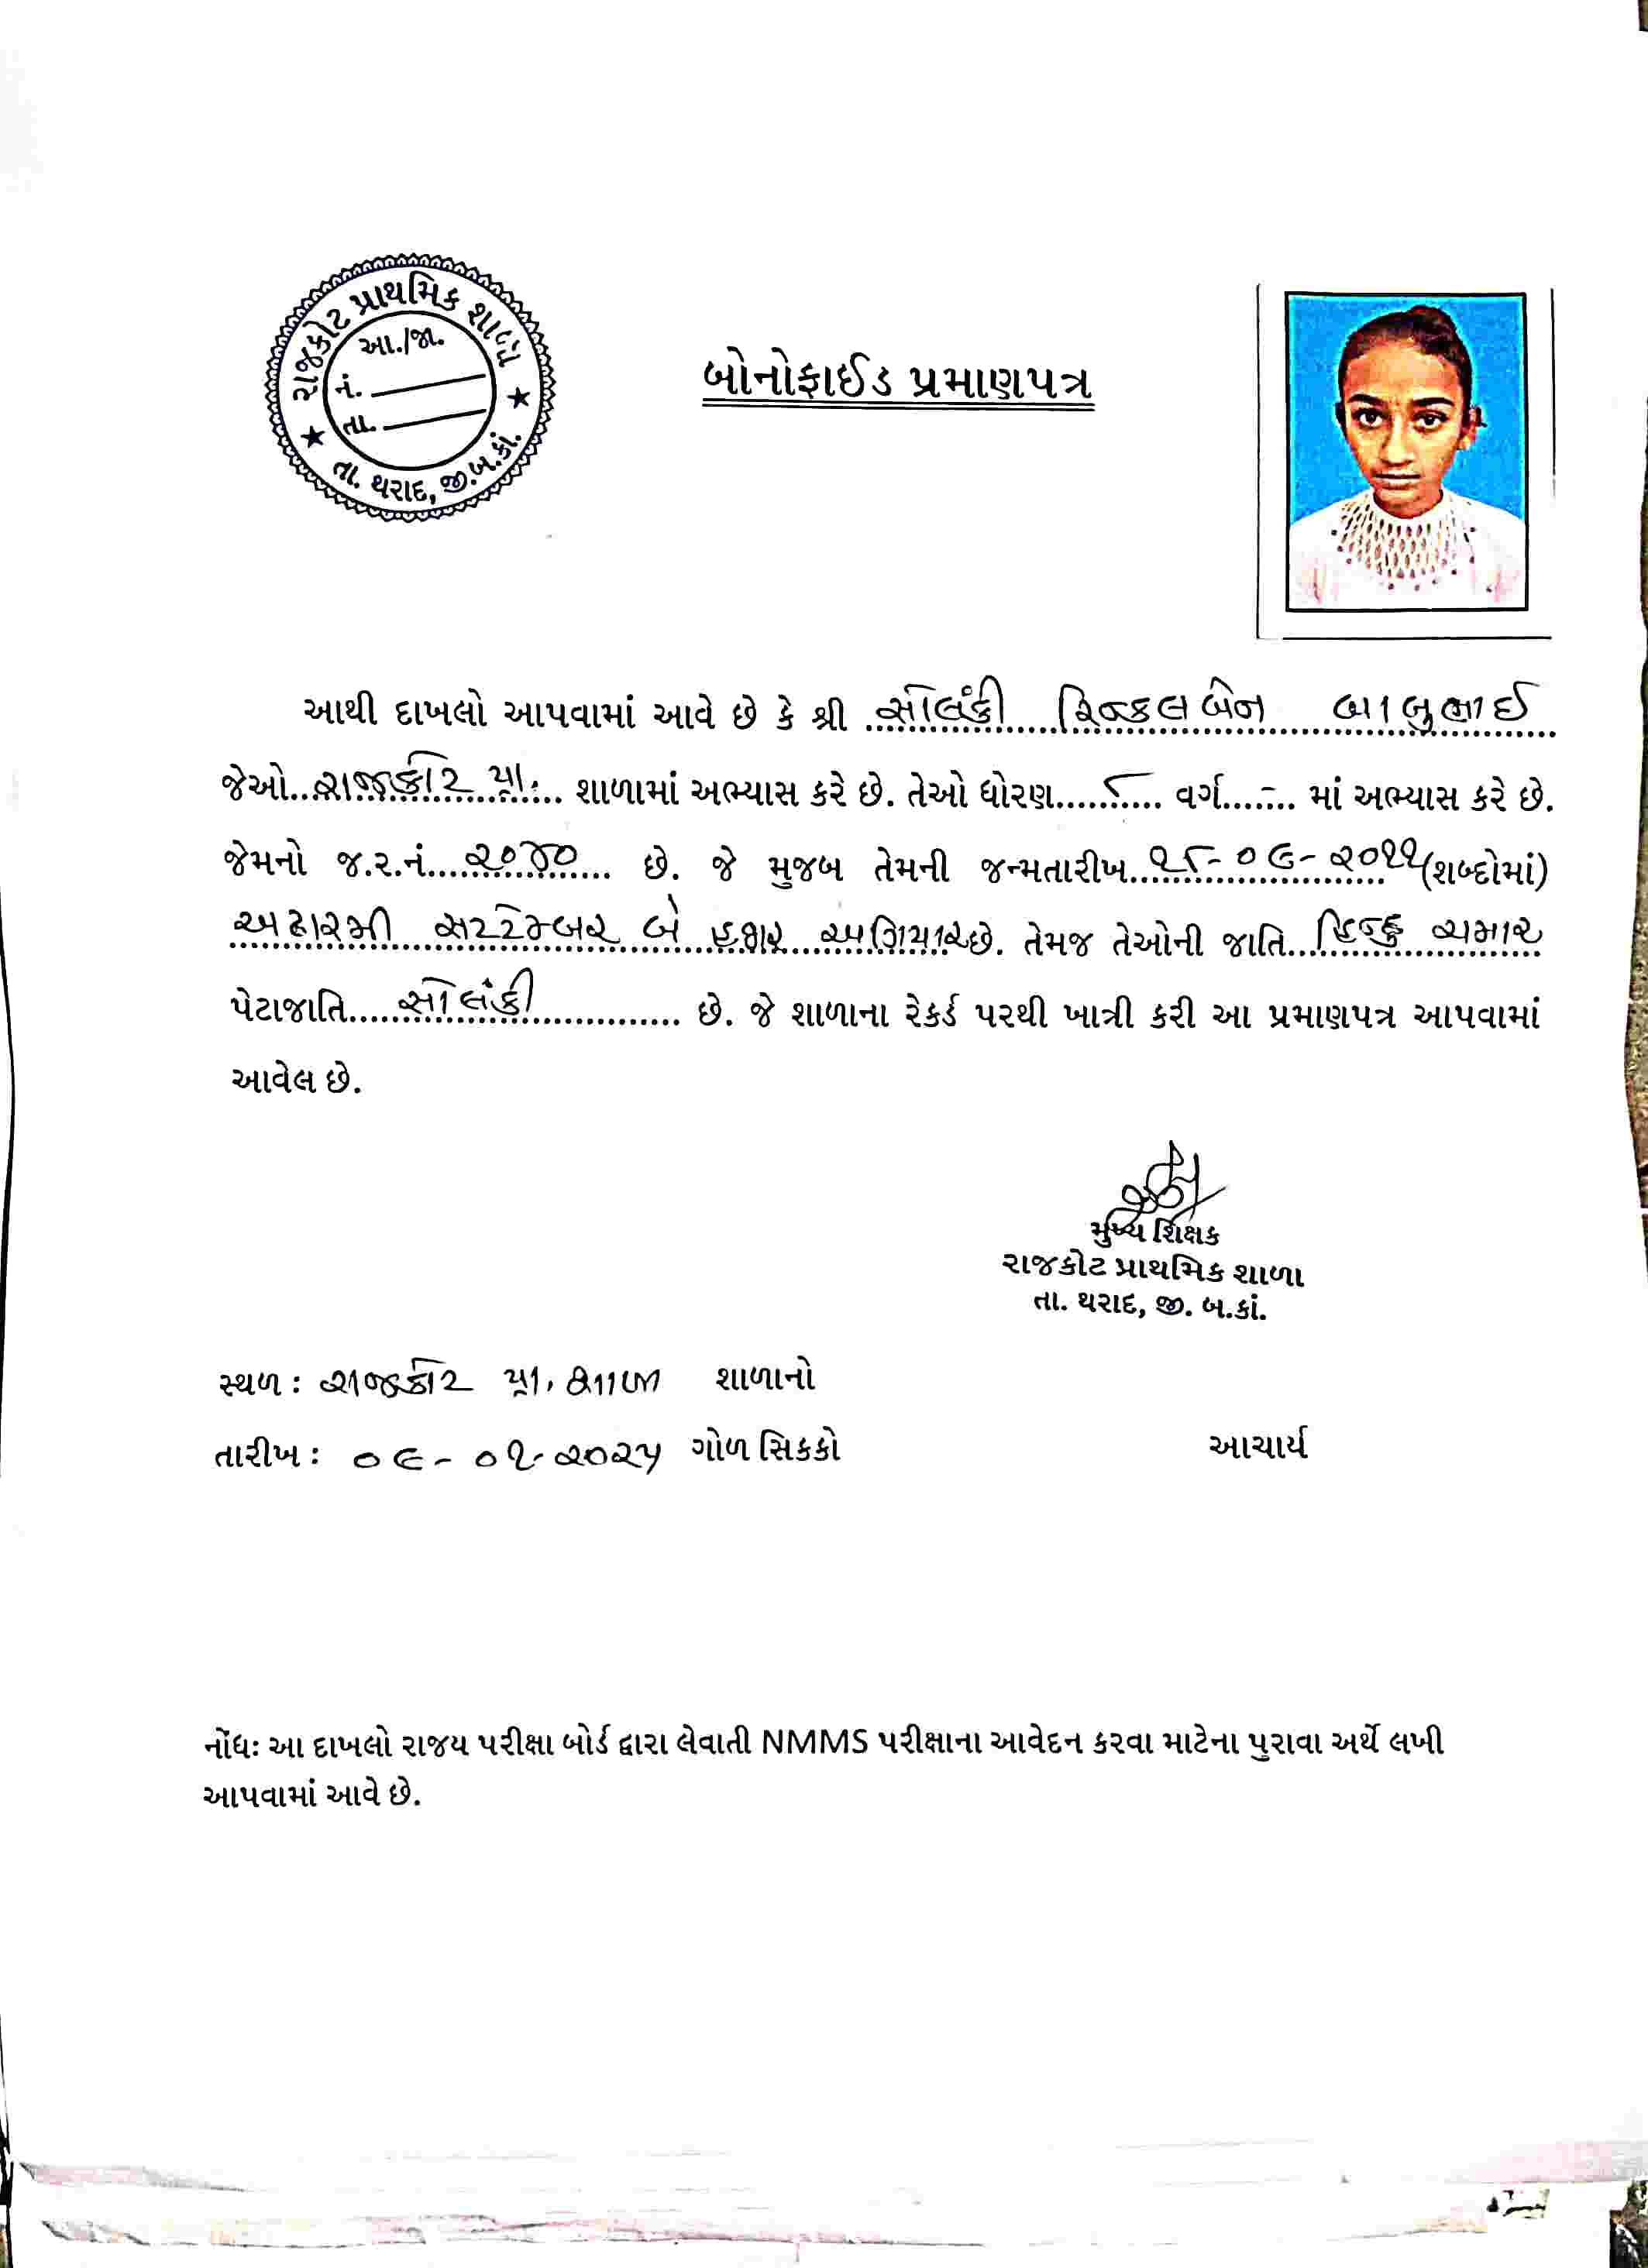 રાજકોટ પ્રાથમિક શાળા
આ./જા.
નં.
તા.
★ તા. થરાદ, જી.બ.કાં. ★
બોનોફાઈડ પ્રમાણપત્ર
આથી દાખલો આપવામાં આવે છે કે શ્રી સોલંકી રિન્કલબેન બાબુભાઈ
જેઓ રાજકોટ પ્રા. શાળામાં અભ્યાસ કરે છે. તેઓ ધોરણ ૮ વર્ગ - માં અભ્યાસ કરે છે.
જેમનો જ.ર.નં. ૨૦૪૦ છે. જે મુજબ તેમની જન્મતારીખ ૧૮-૦૯-૨૦૧૧ (શબ્દોમાં)
અઢારમી સપ્ટેમ્બર બે હજાર અગિયાર છે. તેમજ તેઓની જાતિ હિન્દુ ચમાર
પેટાજાતિ સોલંકી છે. જે શાળાના રેકર્ડ પરથી ખાત્રી કરી આ પ્રમાણપત્ર આપવામાં
આવેલ છે.
મુખ્ય શિક્ષક
રાજકોટ પ્રાથમિક શાળા
તા. થરાદ, જી. બ.કાં.
સ્થળ : રાજકોટ પ્રા. શાળા શાળાનો
તારીખ : ૦૯-૦૧-૨૦૨૫ ગોળ સિકકો આચાર્ય
નોંધઃ આ દાખલો રાજય પરીક્ષા બોર્ડ દ્વારા લેવાતી NMMS પરીક્ષાના આવેદન કરવા માટેના પુરાવા અર્થે લખી
આપવામાં આવે છે.